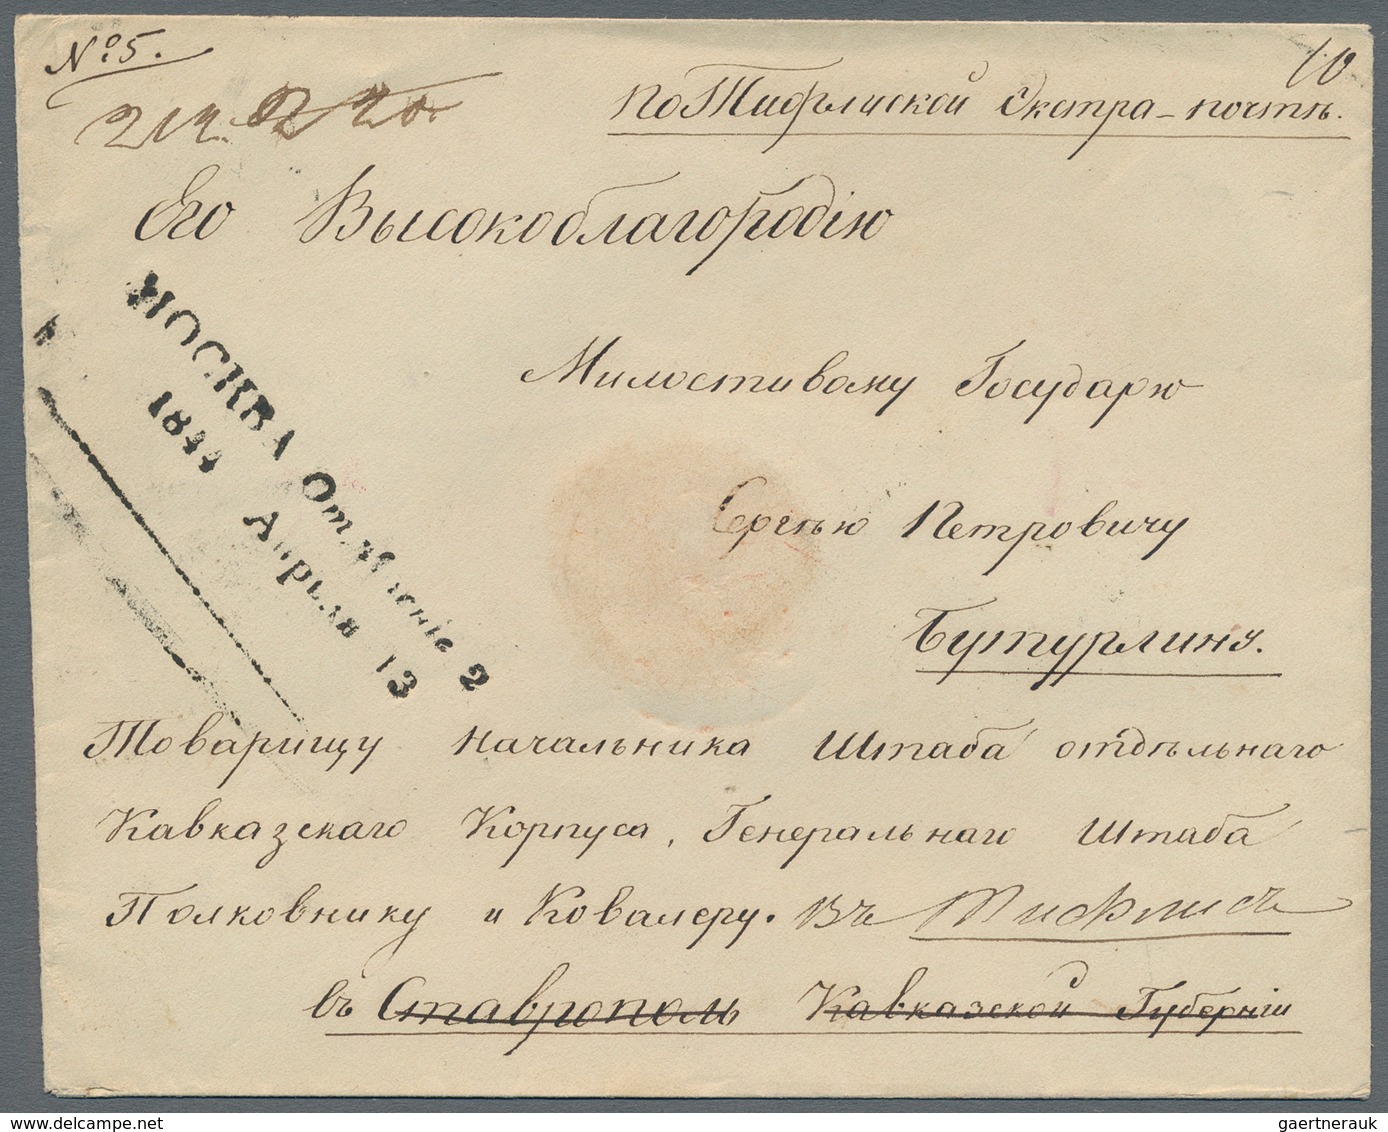 № 5.
10
по Тифлиской Экстра-почтѣ.
Его Высокоблагородію
МОСКВА Отдѣленіе 2
1844 Апрѣля 13
Милостивому Государю
Сергѣю Петровичу
Бутурлину.
Товарищу начальника Штаба отдѣльнаго
Кавказскаго Корпуса, Генеральнаго Штаба
Полковнику и Ковалеру. въ Тифлисъ
въ Ставрополь Кавказской Губерніи
gaertnerauk